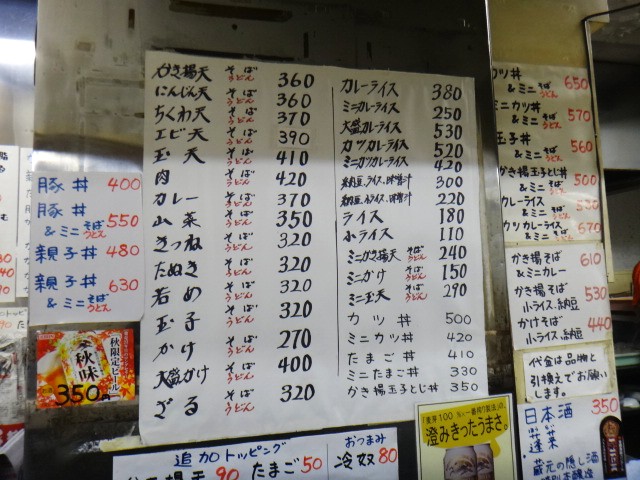 かき揚天 そば うどん 360
にんじん天 そば うどん 360
ちくわ天 そば うどん 370
エビ天 そば うどん 390
玉天 そば うどん 410
肉 そば うどん 420
カレー そば うどん 370
山菜 そば うどん 350
きつね そば うどん 320
たぬき そば うどん 320
若め そば うどん 320
玉子 そば うどん 320
かけ そば うどん 270
大盛かけ そば うどん 400
ざる そば うどん 320
カレーライス 380
ミニカレーライス 250
大盛カレーライス 530
カツカレーライス 520
ミニカツカレーライス 420
納豆、ライス、味噌汁 300
納豆、小ライス、味噌汁 220
ライス 180
小ライス 110
ミニかき揚天 そば うどん 240
ミニかけ そば うどん 150
ミニ玉天 そば うどん 290
カツ丼 500
ミニカツ丼 420
たまご丼 410
ミニたまご丼 330
かき揚玉子とじ丼 350
豚丼 400
豚丼
&ミニ そば うどん 550
親子丼 480
親子丼
&ミニ そば うどん 630
秋限定ビール
秋味
350円
カツ丼
&ミニ そば うどん 650
ミニカツ丼
&ミニ そば うどん 570
玉子丼
&ミニ そば うどん 560
かき揚玉子とじ丼
&ミニ そば うどん 500
カレーライス
&ミニ そば うどん 530
カツカレーライス
&ミニ そば うどん 670
かき揚そば
&ミニカレー 610
かき揚そば
小ライス、納豆 530
かけそば
小ライス、納豆 440
代金は品物と
引換えでお願い
します。
日本酒 350
蓬莱
蔵元の隠し酒
特別本醸造
追加トッピング
かき揚天 90 たまご 50
おつまみ
冷奴 80
澄みきったうまさ。